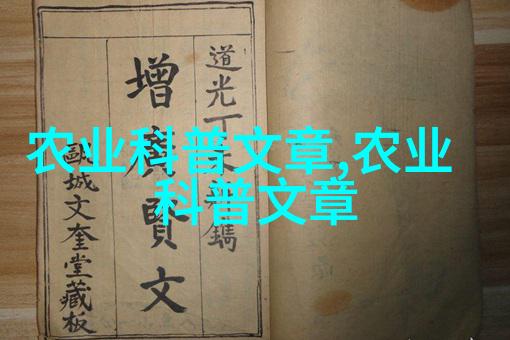 农业科普文章,农业
科普文章
道光丁未鐫
增廣賢文
城文奎堂藏板